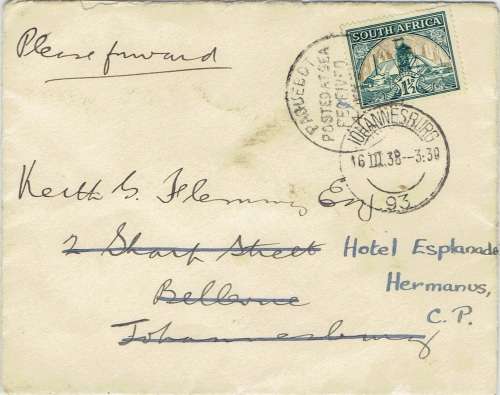 Please forward
SOUTH AFRICA
1½
PAQUEBOT
POSTED AT SEA
RECEIVED
JOHANNESBURG
16 III.38--3:30
93
Keith G. Fleming Esq
2 Sharp Street
Bellevue
Johannesburg
Hotel Esplanade
Hermanus,
C. P.